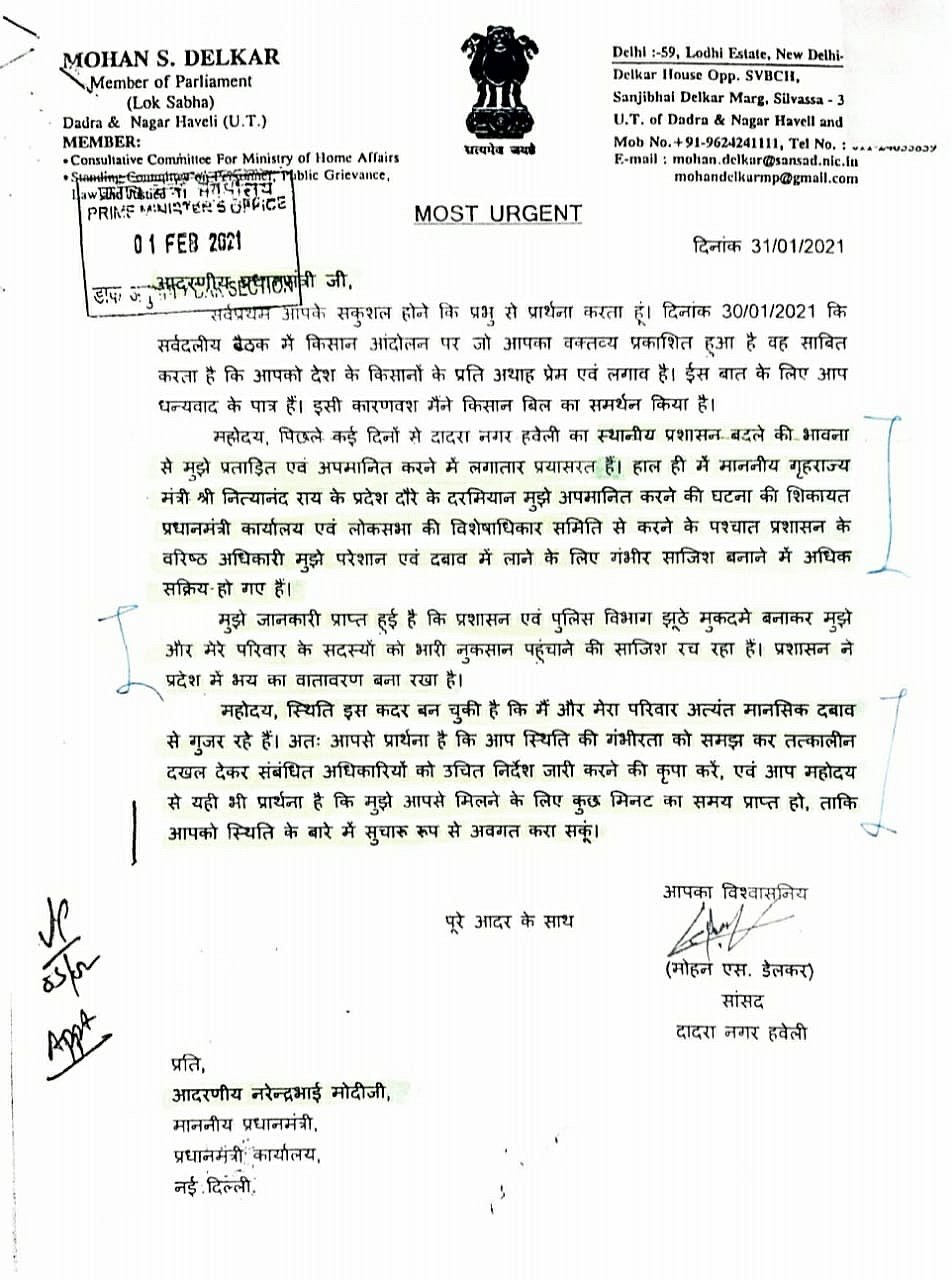 MOHAN S. DELKAR
Member of Parliament
(Lok Sabha)
Dadra & Nagar Haveli (U.T.)
MEMBER:
• Consultative Committee For Ministry of Home Affairs
• Standing Committee on Personnel, Public Grievance,
Law and Justice
सत्यमेव जयते
Delhi :-59, Lodhi Estate, New Delhi-
Delkar House Opp. SVBCH,
Sanjibhai Delkar Marg, Silvassa - 3
U.T. of Dadra & Nagar Haveli and
Mob No.+91-9624241111, Tel No. :
E-mail : mohan.delkar@sansad.nic.in
mohandelkarmp@gmail.com
PRIME MINISTER'S OFFICE
01 FEB 2021
डाक SECTION
MOST URGENT
दिनांक 31/01/2021
आदरणीय प्रधानमंत्री जी,
सर्वप्रथम आपके सकुशल होने कि प्रभु से प्रार्थना करता हूं। दिनांक 30/01/2021 कि
सर्वदलीय बैठक में किसान आंदोलन पर जो आपका वक्तव्य प्रकाशित हुआ है वह साबित
करता है कि आपको देश के किसानों के प्रति अथाह प्रेम एवं लगाव है। ईस बात के लिए आप
धन्यवाद के पात्र हैं। इसी कारणवश मैंने किसान बिल का समर्थन किया है।
महोदय, पिछले कई दिनों से दादरा नगर हवेली का स्थानीय प्रशासन बदले की भावना
से मुझे प्रताड़ित एवं अपमानित करने में लगातार प्रयासरत हैं। हाल ही में माननीय गृहराज्य
मंत्री श्री नित्यानंद राय के प्रदेश दौरे के दरमियान मुझे अपमानित करने की घटना की शिकायत
प्रधानमंत्री कार्यालय एवं लोकसभा की विशेषाधिकार समिति से करने के पश्चात प्रशासन के
वरिष्ठ अधिकारी मुझे परेशान एवं दबाव में लाने के लिए गंभीर साजिश बनाने में अधिक
सक्रिय हो गए हैं।
मुझे जानकारी प्राप्त हुई है कि प्रशासन एवं पुलिस विभाग झूठे मुकदमे बनाकर मुझे
और मेरे परिवार के सदस्यों को भारी नुकसान पहुंचाने की साजिश रच रहा हैं। प्रशासन ने
प्रदेश में भय का वातावरण बना रखा है।
महोदय, स्थिति इस कदर बन चुकी है कि मैं और मेरा परिवार अत्यंत मानसिक दबाव
से गुजर रहे हैं। अतः आपसे प्रार्थना है कि आप स्थिति की गंभीरता को समझ कर तत्कालीन
दखल देकर संबंधित अधिकारियों को उचित निर्देश जारी करने की कृपा करें, एवं आप महोदय
से यही भी प्रार्थना है कि मुझे आपसे मिलने के लिए कुछ मिनट का समय प्राप्त हो, ताकि
आपको स्थिति के बारे में सुचारू रूप से अवगत करा सकूं।
आपका विश्वासनिय
पूरे आदर के साथ
(मोहन एस. डेलकर)
सांसद
दादरा नगर हवेली
प्रति,
आदरणीय नरेन्द्रभाई मोदीजी,
माननीय प्रधानमंत्री,
प्रधानमंत्री कार्यालय,
नई दिल्ली.